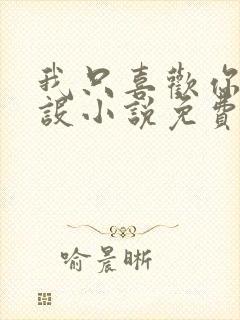 我只喜歡你
設小說免費
喻晨晰